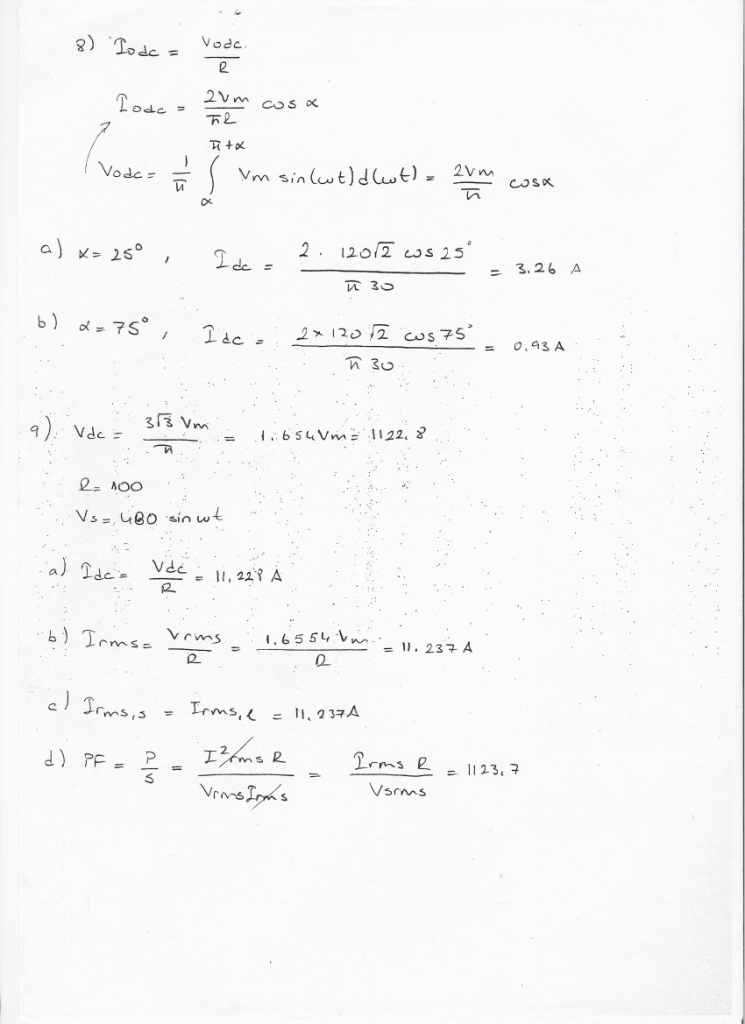 8) Iodc = Vodc / R
Iodc = 2Vm / πR cos α
Vodc = 1/π ∫ α π+α Vm sin(ωt)d(ωt) = 2Vm / π cosα
a) α= 25° , Idc = 2 . 120√2 cos 25° / π 30 = 3.26 A
b) α = 75° , Idc = 2 × 120 √2 cos 75° / π 30 = 0.93 A
9) Vdc = 3√3 Vm / π = 1.654Vm = 1122.8
R= 100
Vs = 480 sin ωt
a) Idc = Vdc / R = 11.228 A
b) Irms = Vrms / R = 1.6554 Vm / R = 11.237 A
c) Irms,s = Irms,l = 11.237A
d) PF = P / S = I²rms R / Vrms Irms = Irms R / Vsrms = 1123.7